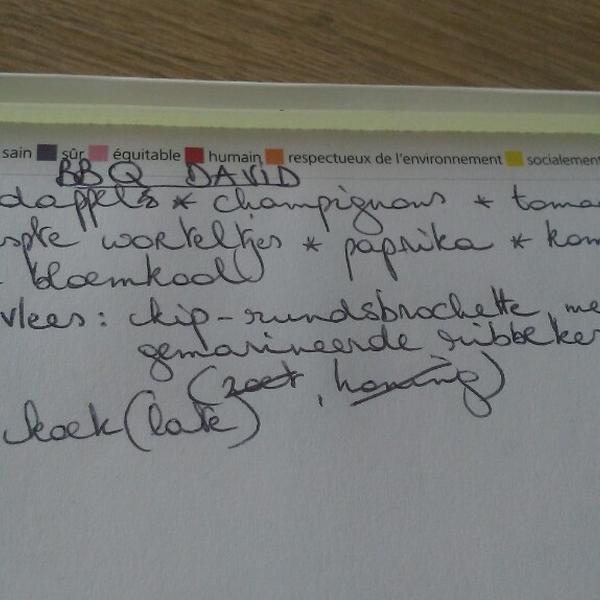 sain sûr équitable humain respectueux de l'environnement socialement
BBQ DAVID
dappels * champignons * toma
spke worteltjes * paprika * kom
bloemkool
vlees: kip-rundsbrochette, me
gemarineerde ribbeke
(zoet, honing)
koek (late)